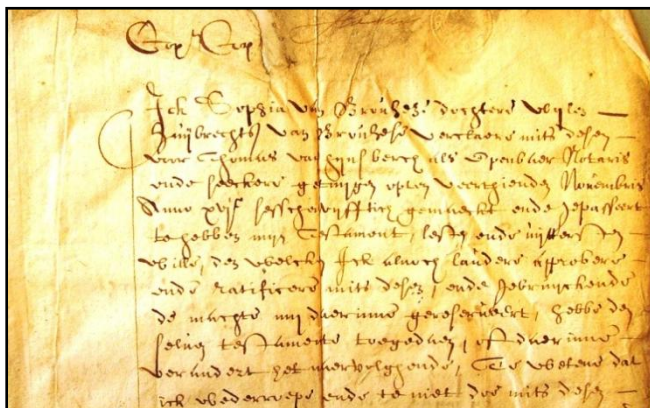 Cop. Cop.
Ick Sophia van Bronkese dochtere wijlen
Huijbrechts van Bronkese verclaere mits desen
voor Thomas van Gijnsberch als Openbaer Notaris
ende seeckere getuijgen opten veerthienden Novembris
Anno xvjc sesschenvijfftich gemaeckt ende gepasseert
te hebben mijn Testament, lesten ende uijttersten
wille, den welcken Ick alnoch laudere approbere
ende ratificere mits desen, ende gebruijckende
de machte mij daerinne gereserveert, hebbe den
selven testamente toegedaen, oft daerinne
verandert het naervolghende, Te wetene dat
ick wederroepe ende te niet doe mits desen